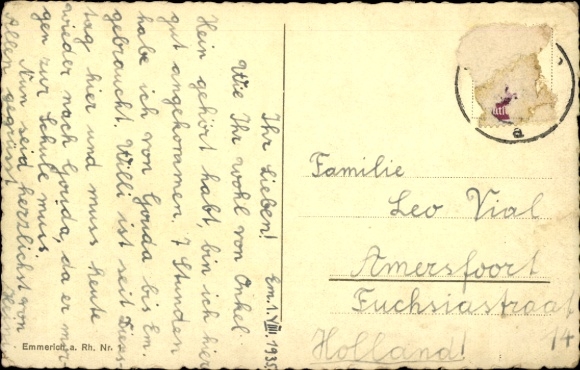 Em. 1. VIII. 1935.
Ihr Lieben!
Wie Ihr wohl von Onkel
Hein gehört habt, bin ich hier
gut angekommen. 7 Stunden
habe ich von Gouda bis Em.
gebraucht. Willi ist seit Diens-
tag hier und muss heute
wieder nach Gouda, da er mor-
gen zur Schule muss.
Nun seid herzlichst von
Allen gegrüsst
Familie
Leo Vial
Amersfoort
Fuchsiastraat
14
Holland!
Emmerich a. Rh. Nr.